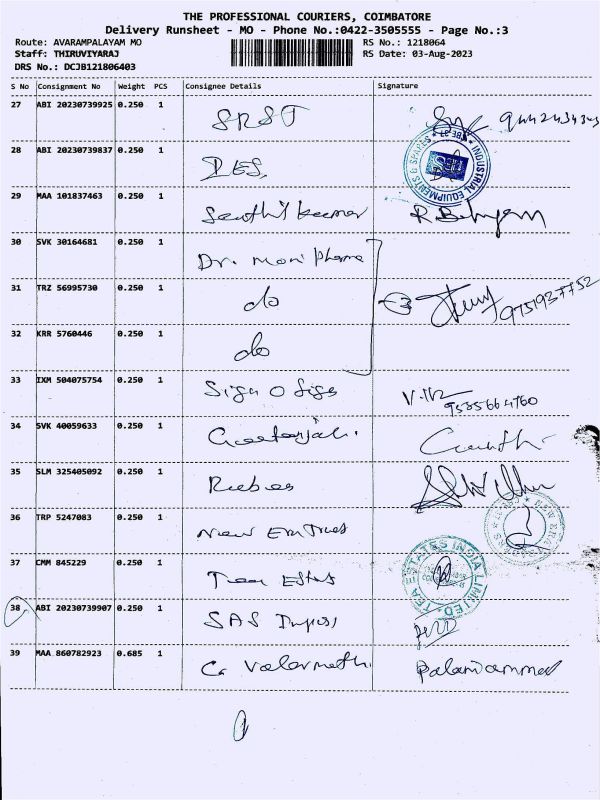 THE PROFESSIONAL COURIERS, COIMBATORE
Delivery Runsheet - MO - Phone No.:0422-3505555 - Page No.:3
Route: AVARAMPALAYAM MO RS No.: 1218064
Staff: THIRUVIYARAJ RS Date: 03-Aug-2023
DRS No.: DCJB121806403
S No Consignment No Weight PCS Consignee Details Signature
27 ABI 20230739925 0.250 1 SRST
28 ABI 20230739837 0.250 1 DES INDUSTRIAL EQUIPMENTS & SPARES
29 MAA 101837463 0.250 1 Senthil kumar
30 SVK 30164681 0.250 1 Dr. Moni pharma
31 TRZ 56995730 0.250 1 do 9751937752
32 KRR 5760446 0.250 1 do
33 IXM 504075754 0.250 1 9585664760
34 SVK 40059633 0.250 1 Geetanjali.
35 SLM 325405092 0.250 1
36 TRP 5247083 0.250 1 New
37 CMM 845229 0.250 1 TEA ESTATES INDIA LIMITED
38 ABI 20230739907 0.250 1 SAS
39 MAA 860782923 0.685 1 C. Valarmathi. Palaniammal